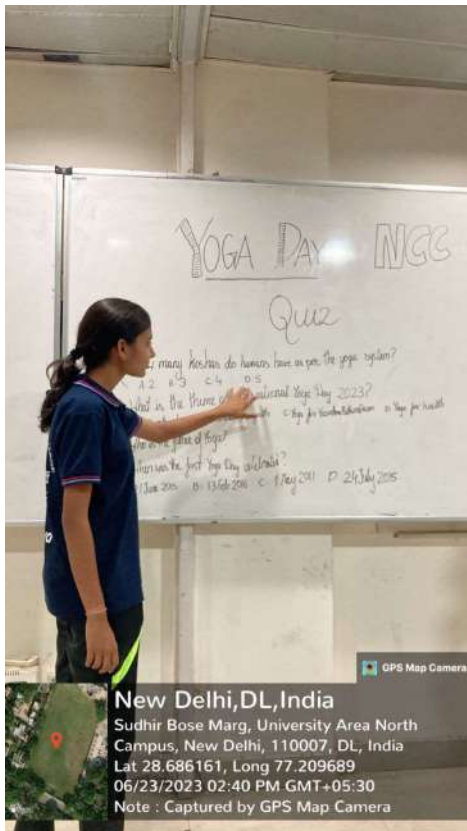 YOGA DAY NCC
Quiz
many Koshas do humans have as per the yoga system?
A. 2 B. 3 C. 4 D. 5
What is the theme of national Yoga Day 2023?
C. Yoga for Vasudhaiva Kutumbakam D. Yoga for health
is the father of Yoga?
was the first Yoga Day celebrated?
June 2015 B. 13 Feb 2016 C. 1 May 2011 D. 24 July 2015
GPS Map Camera
New Delhi,DL,India
Sudhir Bose Marg, University Area North
Campus, New Delhi, 110007, DL, India
Lat 28.686161, Long 77.209689
06/23/2023 02:40 PM GMT+05:30
Note : Captured by GPS Map Camera